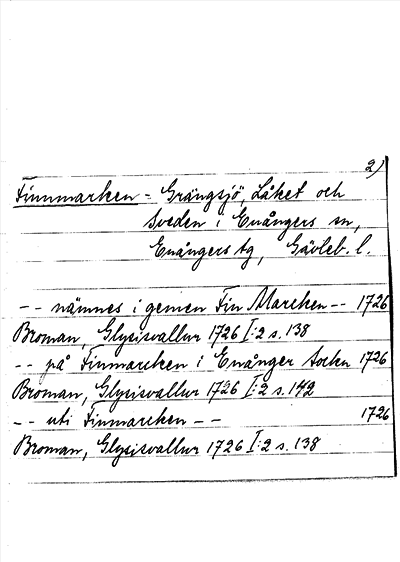 2)
Finnmarken = Grängsjö, Låket och
Sveden i Enångers sn,
Enångers tg, Gävleb. l.
-- nämnes i gemen Fin Marcken -- 1726
Broman, Glysisvallur 1726 I:2 s. 138
-- på Finmarcken i Enånger Sockn 1726
Broman, Glysisvallur 1726 I:2 s. 142
-- uti Finmarcken -- 1726
Broman, Glysisvallur 1726 I:2 s. 138